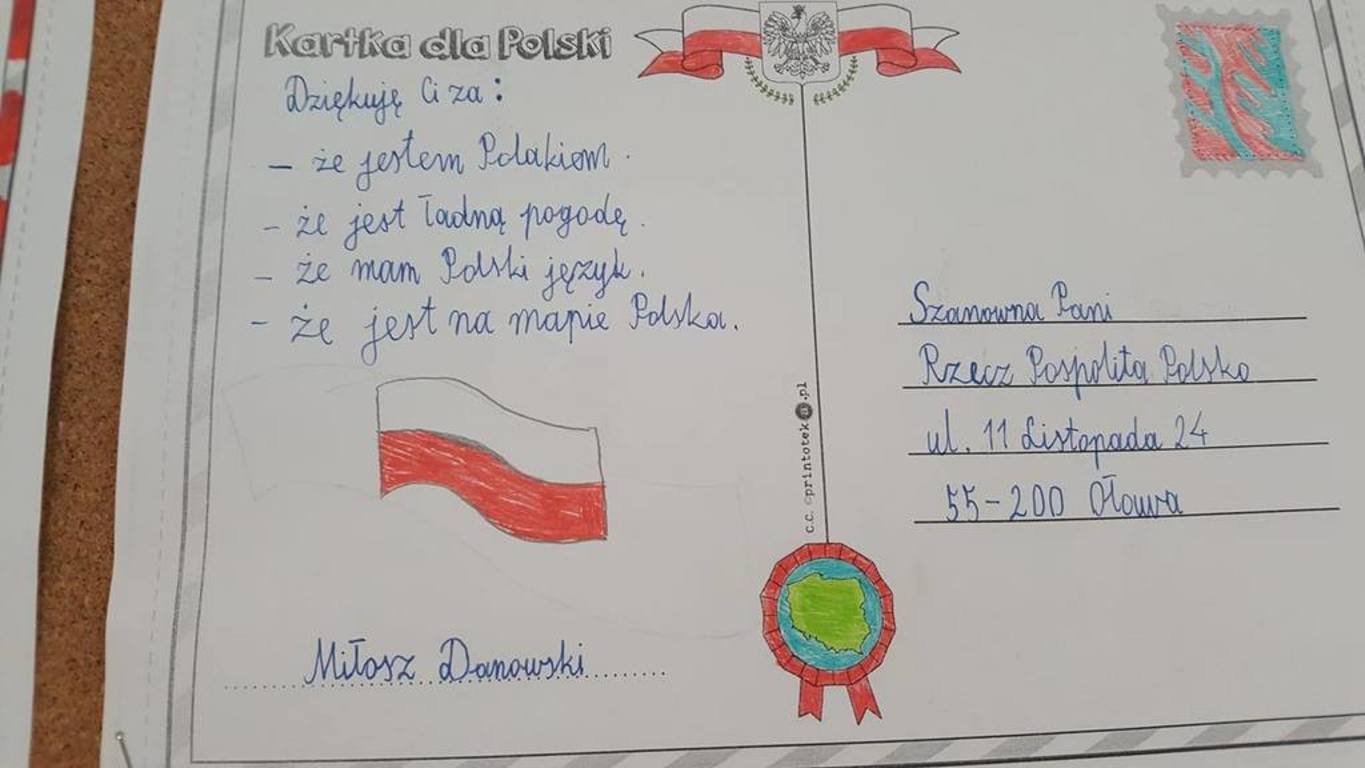 Kartka dla Polski
Dziękuję Ci za:
– że jestem Polakiem.
– że jest ładną pogodę.
– że mam Polski język.
– że jest na mapie Polska.
Miłosz Danowski
c.c. ©printoteka.pl
Szanowna Pani
Rzecz Pospolita Polska
ul. 11 Listopada 24
55-200 Oława